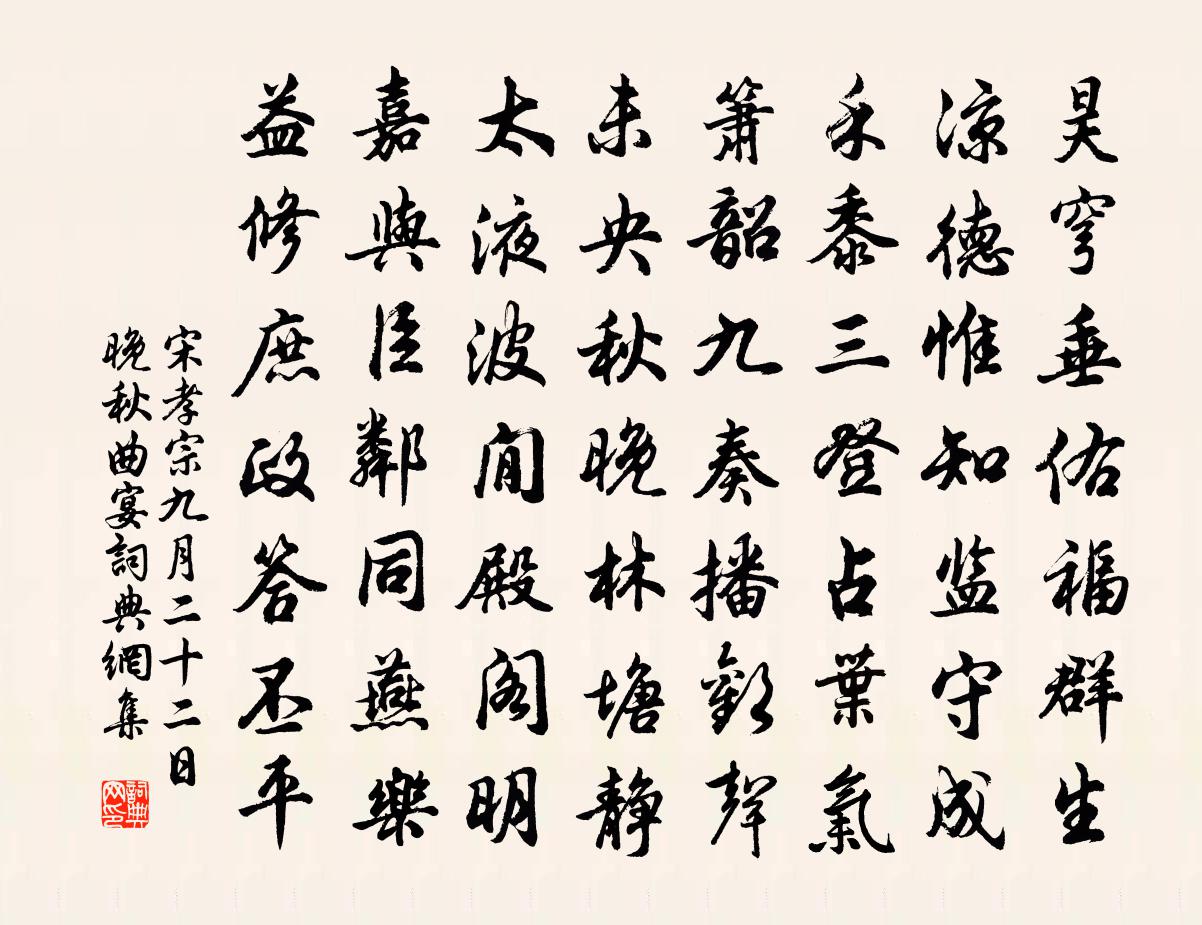 昊穹垂佑福群生
涼德惟知監守成
禾黍三登占葉氣
簫韶九奏播歡聲
未央秋晚林塘靜
太液波閒殿閣明
嘉與臣鄰同燕樂
益修庶政答丕平
宋孝宗九月二十二日
晚秋曲宴詞典網集
詞典網印